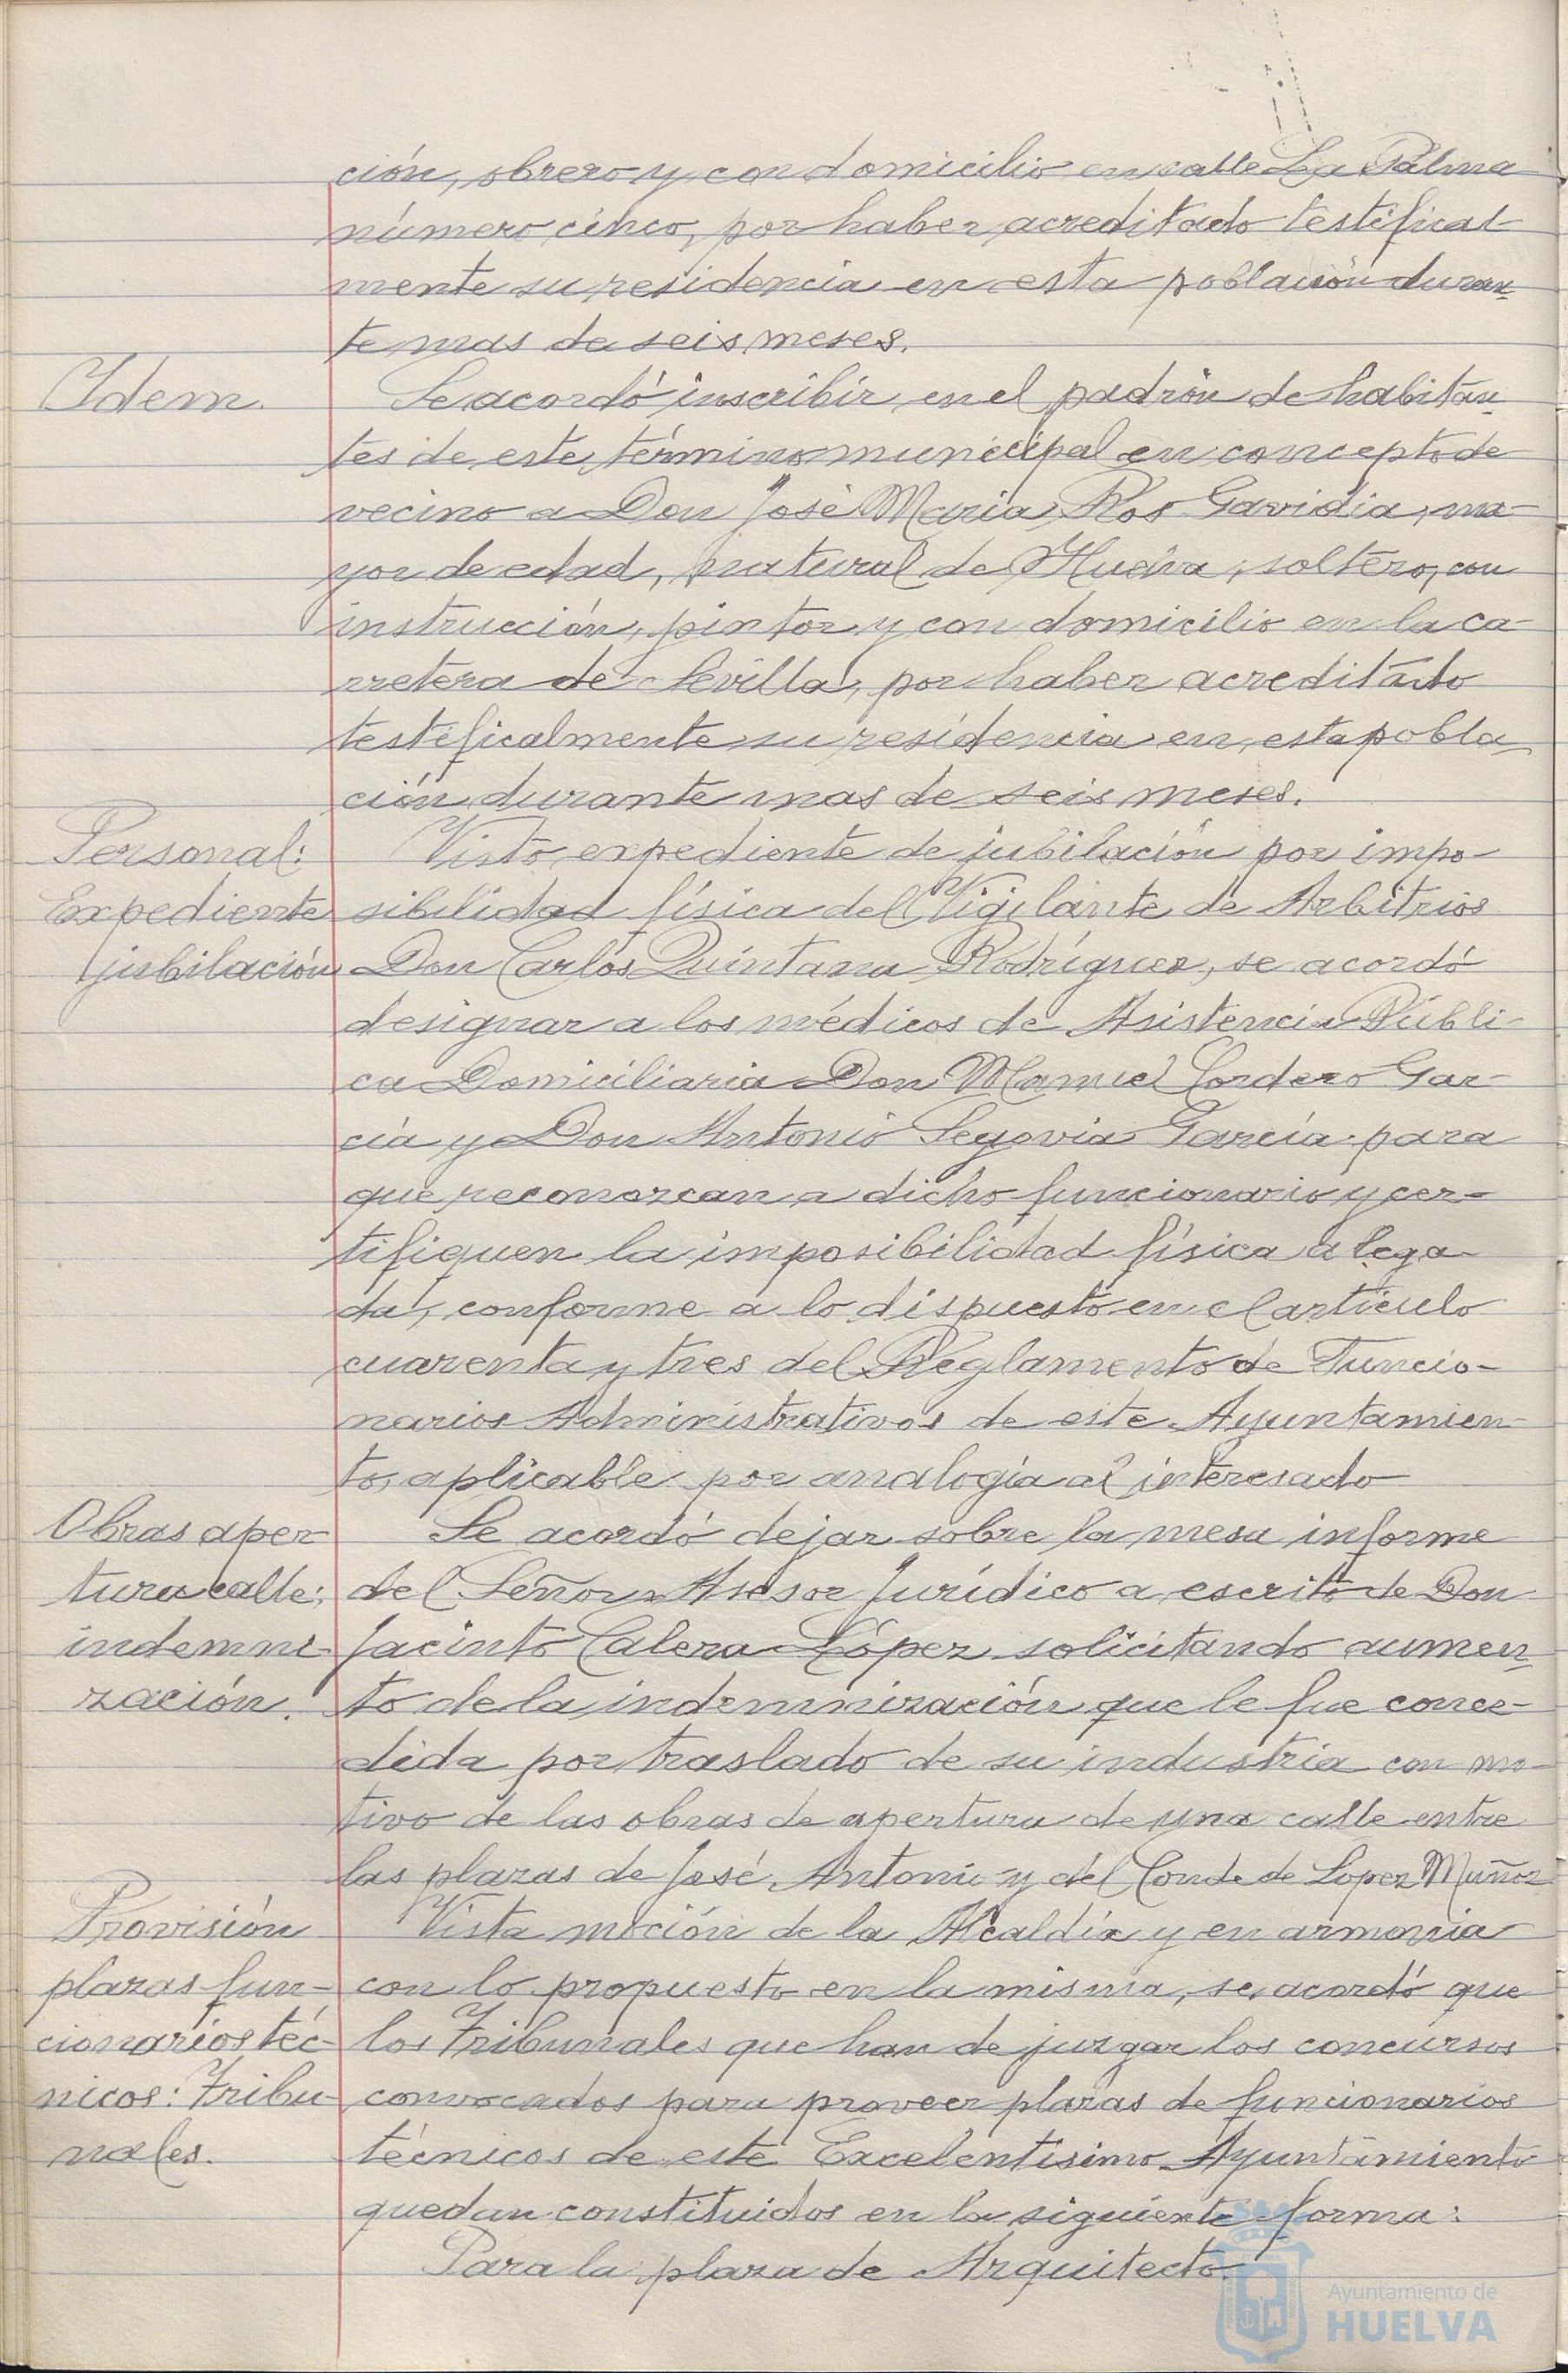 ción, obrero y con domicilio en calle La Palma
número cinco, por haber acreditado testifical-
mente su residencia en esta población duran-
te mas de seis meses.
Idem.
Se acordó inscribir en el padrón de habitan-
tes de este término municipal en concepto de
vecino a Don José Maria Ros Gavidia, ma-
yor de edad, natural de Huelva, soltero, con
instrucción, pintor y con domicilio en la ca-
rretera de Sevilla, por haber acreditado
testificalmente su residencia en esta pobla-
ción durante mas de seis meses.
Personal:
Expediente
jubilación
Visto expediente de jubilación por impo-
sibilidad física del Vigilante de Arbitrios
Don Carlos Quintana Rodríguez, se acordó
designar a los médicos de Asistencia Públi-
ca Domiciliaria Don Manuel Cordero Gar-
cía y Don Antonio Segovia García para
que reconozcan a dicho funcionario y cer-
tifiquen la imposibilidad física alega-
da, conforme a lo dispuesto en el artículo
cuarenta y tres del Reglamento de Funcio-
narios Administrativos de este Ayuntamien-
to, aplicable por analogía al interesado
Obras aper-
tura calle:
indemni-
zación.
Se acordó dejar sobre la mesa informe
del Señor Asesor Jurídico a escrito de Don
Jacinto Calera López solicitando aumen-
to de la indemnización que le fue conce-
dida por traslado de su industria con mo-
tivo de las obras de apertura de una calle entre
las plazas de José Antonio y del Conde de Lopez Muñoz
Provisión
plazas fun-
cionarios téc-
nicos: Tribu-
nales.
Vista moción de la Alcaldía y en armonia
con lo propuesto en la misma, se acordó que
los Tribunales que han de juzgar los concursos
convocados para proveer plazas de funcionarios
técnicos de este Excelentísimo Ayuntamiento
quedan constituidos en la siguiente forma:
Para la plaza de Arquitecto.
Ayuntamiento de
HUELVA